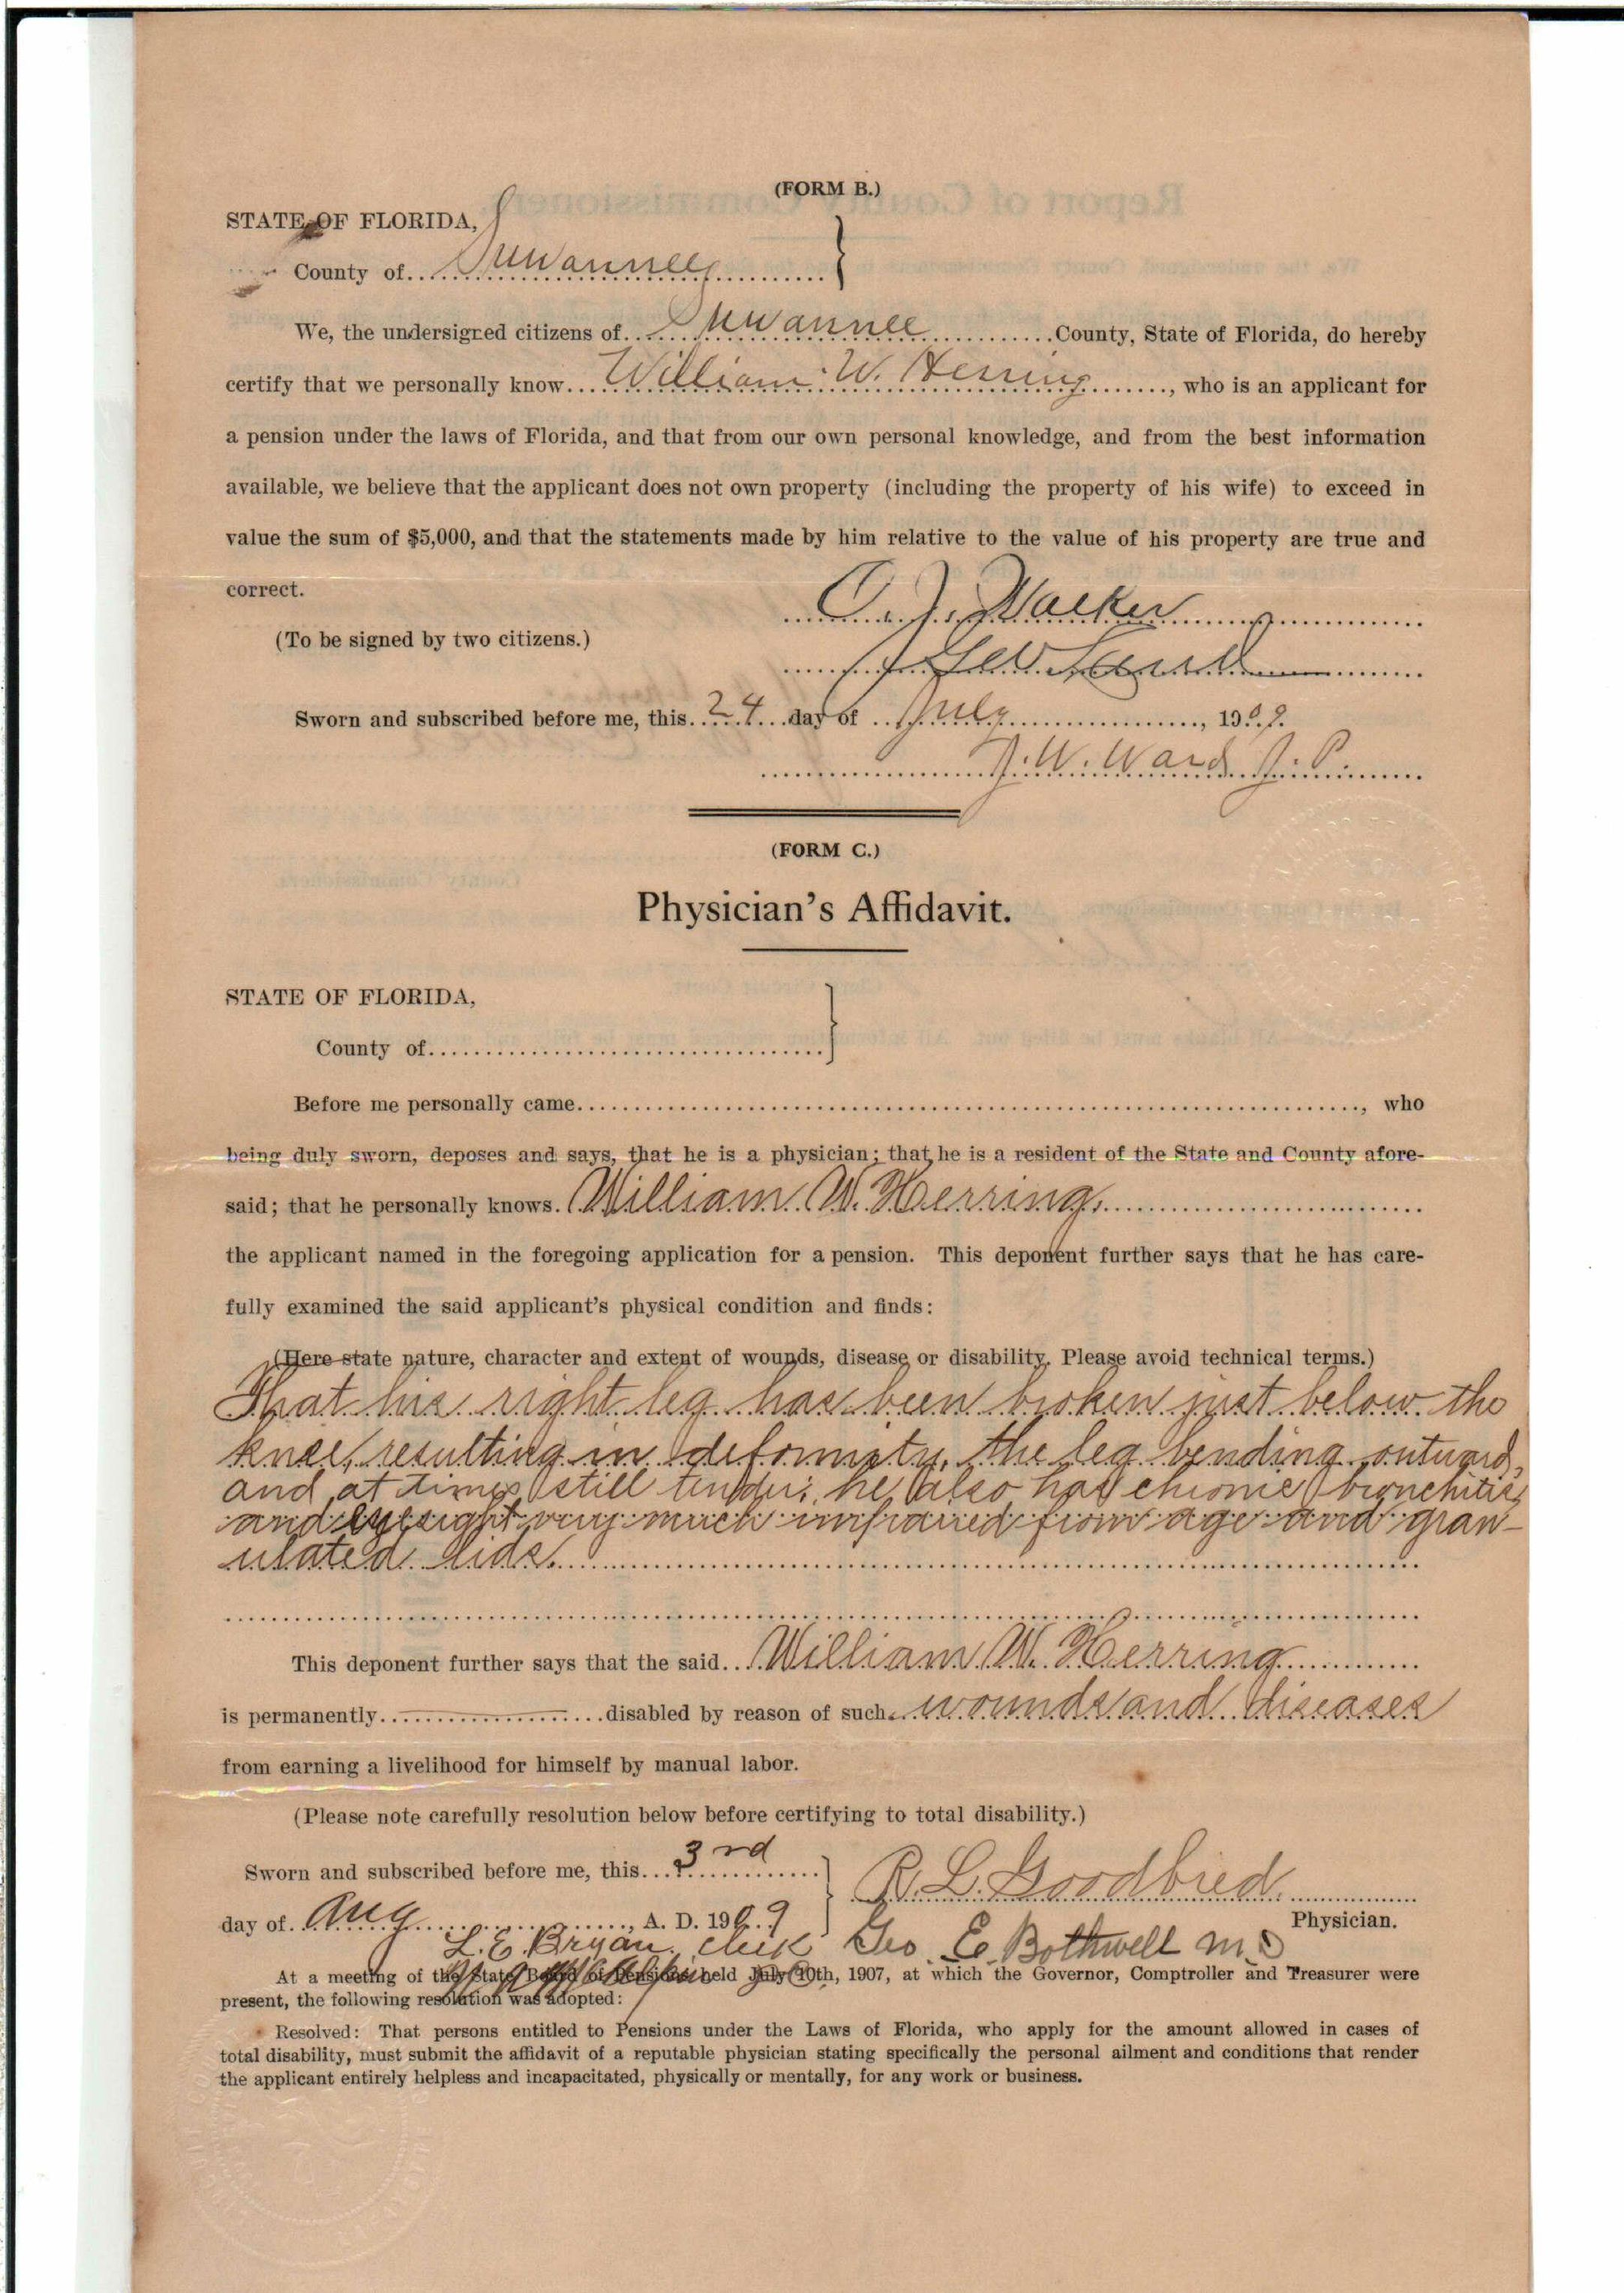 (FORM B.)
STATE OF FLORIDA,
County of Suwannee
We, the undersigned citizens of Suwannee County, State of Florida, do hereby
certify that we personally know William W. Herring, who is an applicant for
a pension under the laws of Florida, and that from our own personal knowledge, and from the best information
available, we believe that the applicant does not own property (including the property of his wife) to exceed in
value the sum of $5,000, and that the statements made by him relative to the value of his property are true and
correct.
Walker
(To be signed by two citizens.)
Sworn and subscribed before me, this 24 day of July, 1909.
J. W. Ward J. P.
(FORM C.)
Physician's Affidavit.
STATE OF FLORIDA,
County of
Before me personally came, who
being duly sworn, deposes and says, that he is a physician; that he is a resident of the State and County afore-
said; that he personally knows William W. Herring
the applicant named in the foregoing application for a pension. This deponent further says that he has care-
fully examined the said applicant's physical condition and finds:
(Here state nature, character and extent of wounds, disease or disability. Please avoid technical terms.)
That his right leg has been broken just below the
knee, resulting in deformity, the leg bending outward,
and at times still tender; he also has chronic bronchitis,
and eyesight very much impaired from age and gran-
ulated lids.
This deponent further says that the said William W. Herring
is permanently disabled by reason of such wounds and diseases
from earning a livelihood for himself by manual labor.
(Please note carefully resolution below before certifying to total disability.)
Sworn and subscribed before me, this 3rd
R. L. Goodbred
day of Aug, A. D. 1909
Physician.
L. E. Bryan, clerk Geo E Bothwell M.D
At a meeting of the State Board of Pensions held July 10th, 1907, at which the Governor, Comptroller and Treasurer were
present, the following resolution was adopted:
Resolved: That persons entitled to Pensions under the Laws of Florida, who apply for the amount allowed in cases of
total disability, must submit the affidavit of a reputable physician stating specifically the personal ailment and conditions that render
the applicant entirely helpless and incapacitated, physically or mentally, for any work or business.